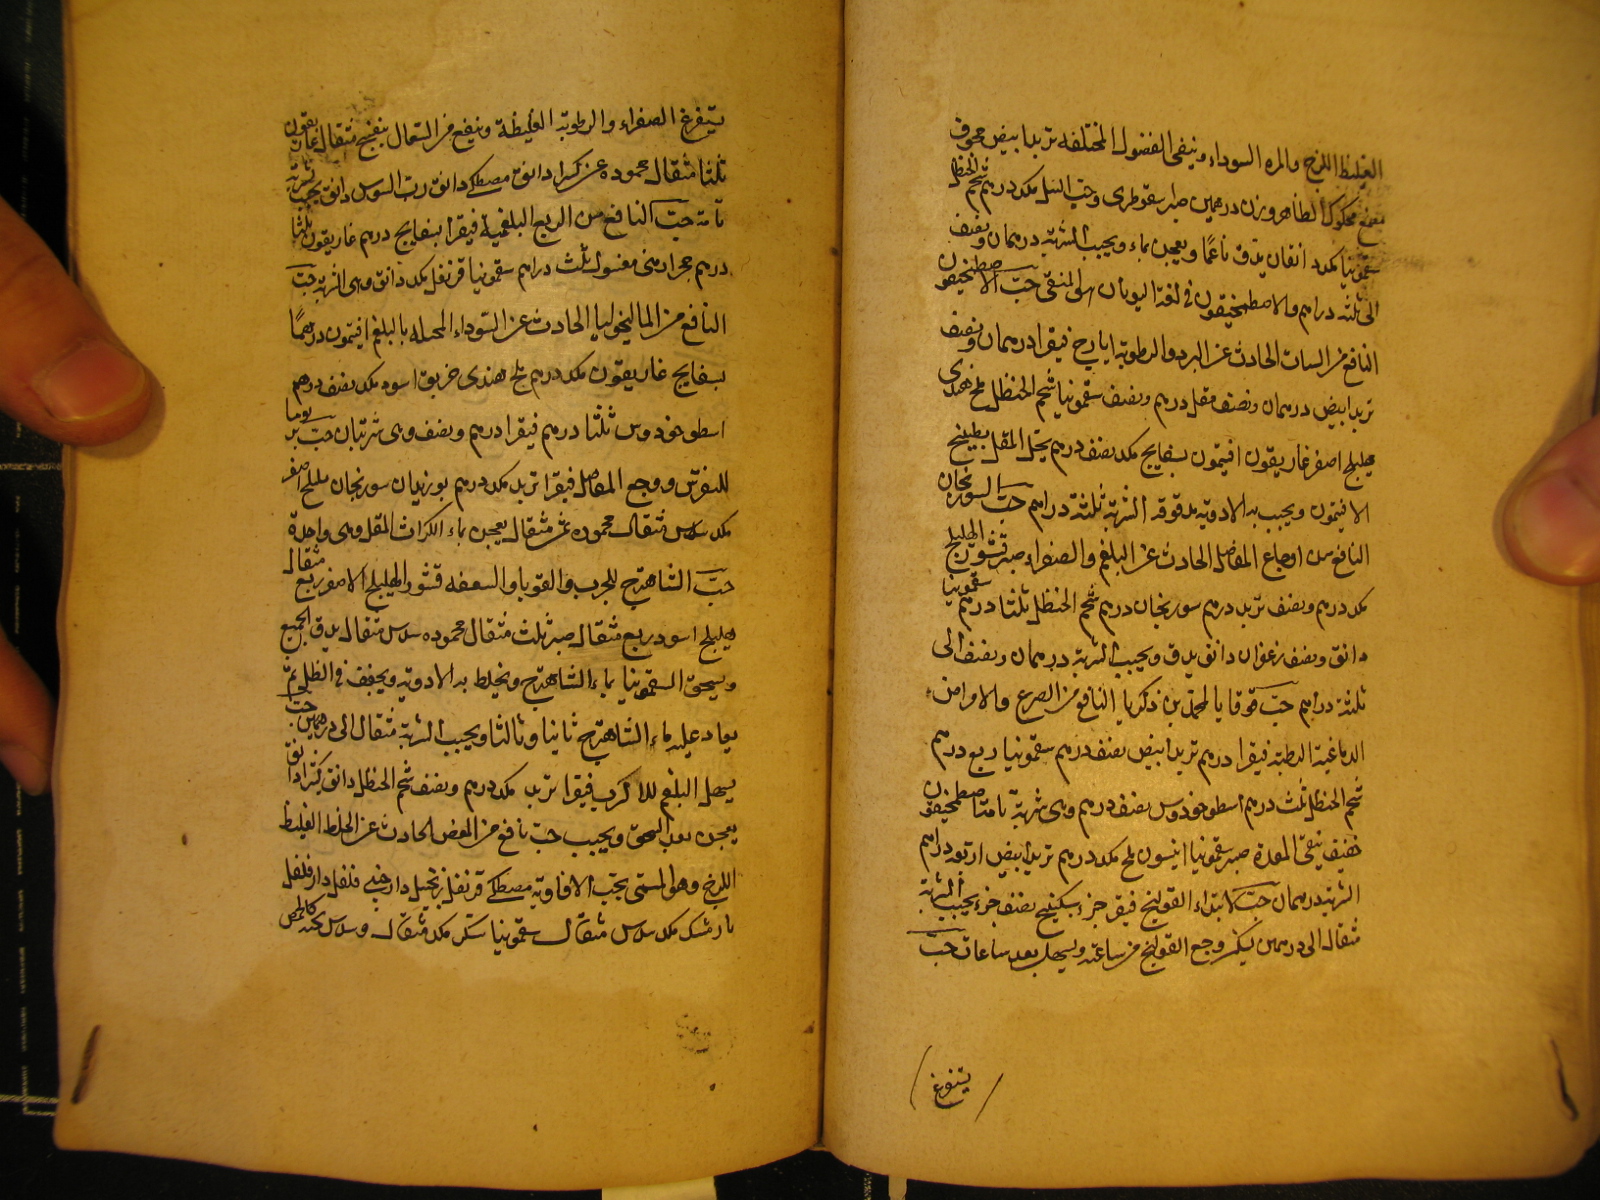 الغليظ اللزج والمره السوداء وينقى الفضول المختلفه تربد ابيض مجوف
مصمغ محكوك الظاهر وزن درهمين صبر سقوطرى وحب النيل مكد درهم شحم الحنظل
سقمونيا مكد دانقان يدق ناعمًا ويعجن بماء ويحبب الشربة درهمان ونصف
الى ثلثة دراهم والاصطمخيقون فى لغة اليونان هو المنقى حب الاصطمخيقون
النافع من السات الحادث عن البرد والرطوبة ايارج فيقرا درهمان ونصف
تربد ابيض درهمان ونصف مقل درهم ونصف سقمونيا شحم الحنظل ملح هندى
هليلج اصفر غاريقون افتيمون بسفايج مكد نصف درهم يحل المقل بطبيخ
الافتيمون ويحبب به الادوية مدقوقة الشربة ثلثة دراهم حب السورنجان
النافع من اوجاع المفاصل الحادث عن البلغم والصفراء صبر قشور الهليلج
مكد درهم ونصف تربد درهم سورنجان درهم شحم الحنظل ثلثا درهم سقمونيا
دانق ونصف زعفران دانق يدق ويحبب الشربة درهمان ونصف الى
ثلثة دراهم حب قوقايا لمحمد بن زكريا النافع من الصرع والامراض
الدماغية الرطبة فيقرا درهم تربد ابيض نصف درهم سقمونيا ربع درهم
شحم الحنظل ثلث درهم اسطوخودوس نصف درهم وهى شربة تامة اصطمخيقون
خفيف ينقى المعدة صبر سقمونيا انيسون ملح مكد درهم تربد ابيض اربعة دراهم
الشربة درهمان حب لابتداء القولنج فيقرا جزء سكبينج نصف جزء يحبب الشربة
مثقال الى درهمين يسكن وجع القولنج من ساعته ويسهل بعد ساعات حب
يستفرغ
يستفرغ الصفراء والرطوبة الغليظة وينفع من السعال بنفسج مثقال غاريقون
ثلثا مثقال محموده عن كثيرا دانق مصطكى دانق رب السوس دانق يحبب شربة
تامة حب النافع من الربع البلغمية فيقرا بسفايج درهم غاريقون ثلثا
درهم حجر ارمنى مغسول ثلث دراهم سقمونيا قرنفل مكد دانق وهى الشربة حب
النافع من الماليخوليا الحادث عن السوداء المحمله بالبلغم افتيمون درهمًا
بسفايج غاريقون مكد درهم ملح هندى خربق اسود مكد نصف درهم
اسطوخودوس ثلثا درهم فيقرا درهم ونصف وهى شربتان حب
للنقرس ووجع المفاصل فيقرا تربد مكد درهم بوزيدان سورنجان هليلج اصفر
مكد سدس مثقال محموده ثمن مثقال يعجن بماء الكراث المقل وهى واحدة
حب الشاهترج للجرب والقوبا والسعفه قشور الهليلج الاصفر ربع مثقال
هليلج اسود ربع مثقال صبر ثلث مثقال محموده سدس مثقال يدق الجميع
ويسحق السقمونيا بماء الشاهترج ويخلط به الادوية ويجفف فى الظل ثم
يعاد عليه ماء الشاهترج ثانيا وثالثا ويحبب الشربة مثقال الى درهمين حب
يسهل البلغم فيقرا تربد مكد درهم ونصف شحم الحنظل دانق كثيرا دانق
يعجن بعد السحق ويحبب حب نافع من المغص الحادث عن الخلط الغليظ
اللزج وهو المسمى بحب الافاوية مصطكى قرنفل زنجبيل دارچينى فلفل دارفلفل
نارمشك مكد سدس مثقال سقمونيا سكر مكد مثقال وسدس